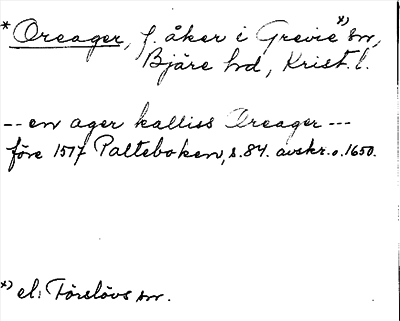 *Oreager, f. åker i Grevie *) sn,
Bjäre hd, Krist. l.
-- en ager kalliss Oreager ---
före 1517 Palteboken, s. 84. avskr. o. 1650.
*) el. Förslövs sn.